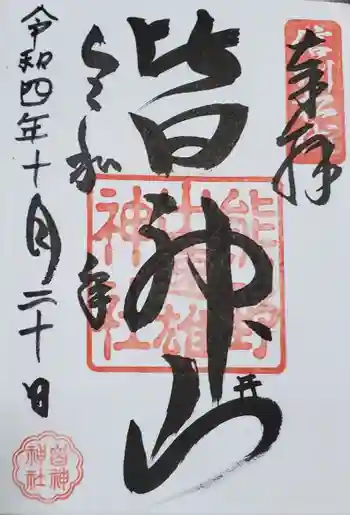 信州松代
奉拝
皆神山
熊野
出速雄
神社
令和四年十月二十日
皆神
神社